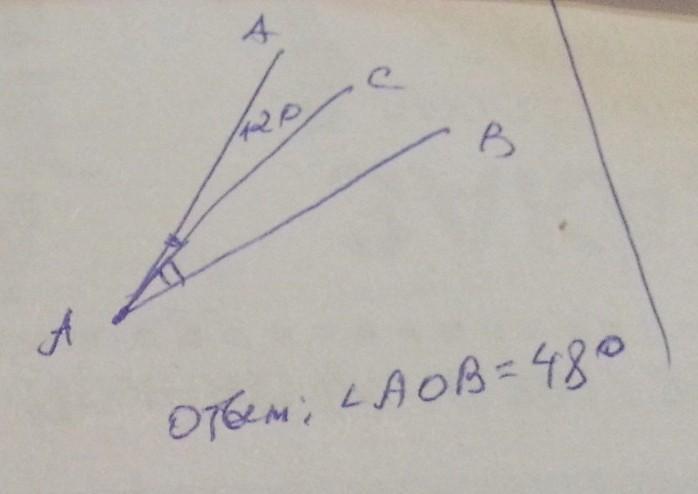 A
C
12°
B
A
Ответ: ∠AOB = 48°